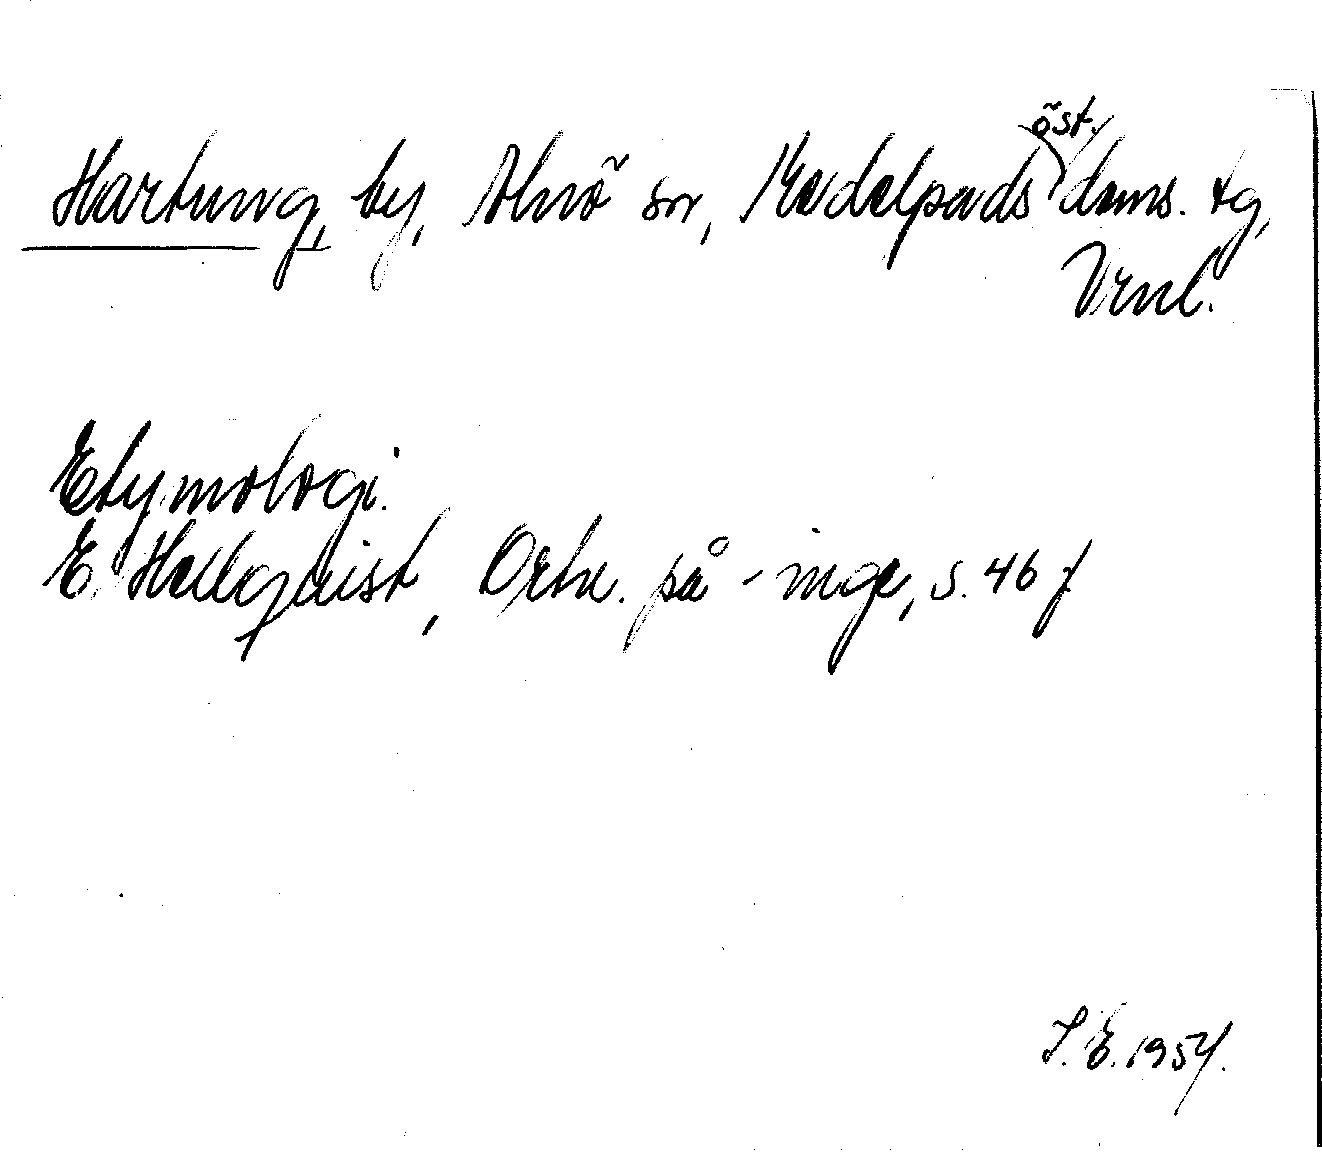 Hartung, by, Alnö sn, Medelpads öst. doms. tg,
Vrnl.
Etymologi.
E. Hellquist, Ortn. på -inge, s. 46 f
S. E. 1954.